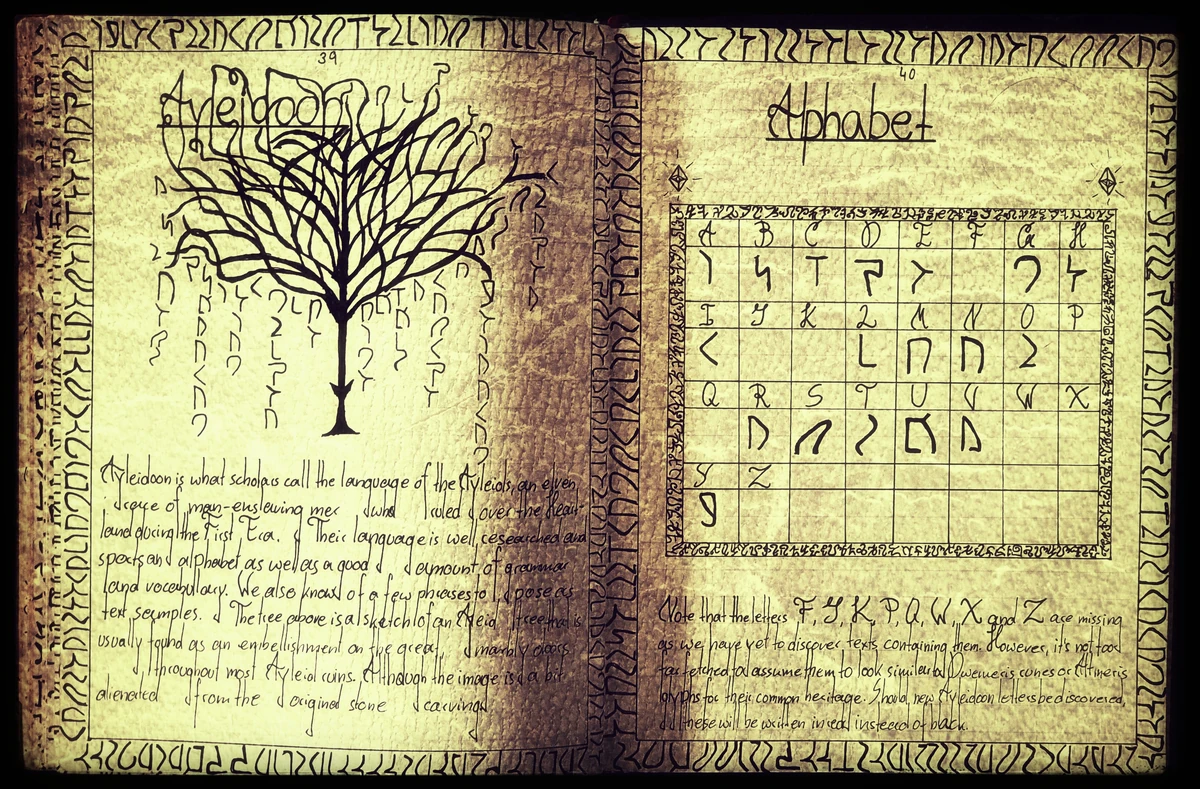 39
Ayleidoon
Ayleidoon is what scholars call the language of the Ayleids, an elven
race of man-enslaving mer who ruled over the Heart-
land during the First Era. Their language is well researched and
sports and alphabet as well as a good amount of grammar
and vocabulary. We also know of a few phrases to pose as
text samples. The tree above is a sketch of an Ayleid tree that is
usually found as an embellishment on the great, marbly doors
throughout most Ayleid ruins. Although the image is a bit
alienated from the original stone carvings
40
Alphabet
A B C D E F G H
I Y K L M N O P
Q R S T U V W X
Y Z
Note that the letters F, Y, K, P, Q, W, X and Z are missing
as we have yet to discover texts containing them. However, it's not too
far fetched to assume them to look similar to Dwemeris runes or Altmeris
glyphs for their common heritage. Should new Ayleidoon letters be discovered,
these will be written in red instead of black.